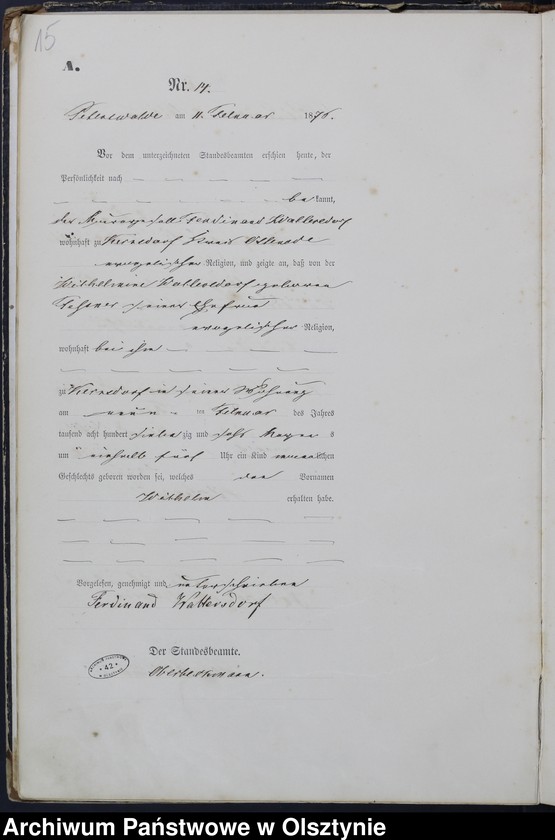 15
A.
Nr. 14.
Peterswalde am 11. Februar 1876.
Vor dem unterzeichneten Standesbeamten erschien heute, der
Persönlichkeit nach
bekannt,
der Ferdinand Kattersdorf
wohnhaft zu Kreis Osterode
evangelischer Religion, und zeigte an, daß von der
Wilhelmine Kattersdorf geborenen
seiner Ehefrau
evangelischer Religion,
wohnhaft bei ihm
zu in seiner Wohnung
am neun ten Februar des Jahres
tausend acht hundert siebenzig und sechs Morgens
um einhalb fünf Uhr ein Kind männlichen
Geschlechts geboren worden sei, welches den Vornamen
Wilhelm erhalten habe.
Vorgelesen, genehmigt und unterschrieben
Ferdinand Kattersdorf
Der Standesbeamte.
42
Archiwum Państwowe w Olsztynie